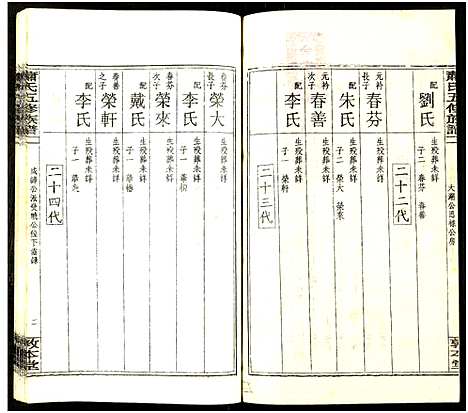 蕭氏五修族譜
大湖公思祿公房
敦本堂
配
劉氏
生歿葬未詳
子二 春芬 春善
二十二代
元補
長子
春芬
生歿葬未詳
配
朱氏
生歿葬未詳
子二 榮大 榮來
元補
次子
春善
生歿葬未詳
配
李氏
生歿葬未詳
子一 榮軒
二十三代
春芬
長子
榮大
生歿葬未詳
配
李氏
生歿葬未詳
子一
春芬
次子
榮來
生歿葬未詳
配
戴氏
生歿葬未詳
子一
春善
之子
榮軒
生歿葬未詳
配
李氏
生歿葬未詳
子一
二十四代
蕭氏五修族譜
二
敦本堂